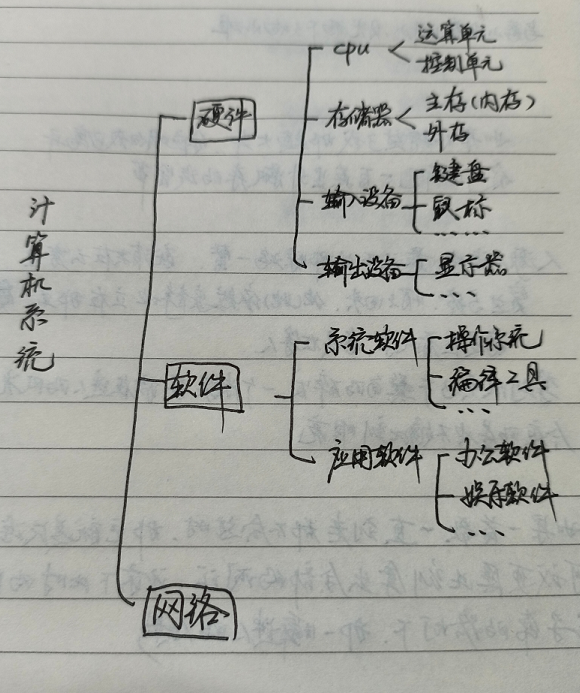 计算机系统
硬件
cpu
运算单元
控制单元
存储器
主存(内存)
外存
输入设备
键盘
鼠标
……
输出设备
显示器
……
软件
系统软件
操作系统
编译工具
……
应用软件
办公软件
娱乐软件
……
网络